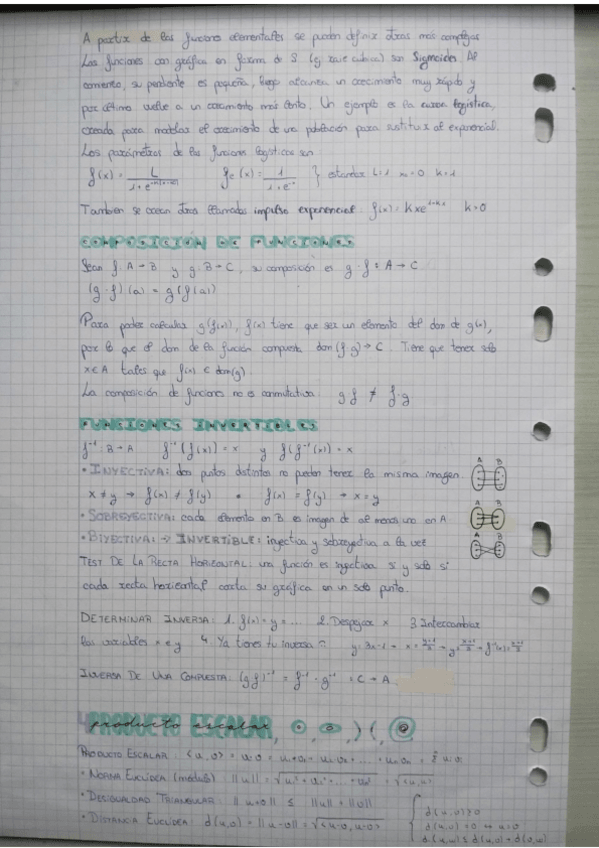 A partir de las funciones elementales se pueden definir otras más complejas
Las funciones con gráfica en forma de S (y raíz cúbica) son Sigmoides. Al
comienzo, su pendiente es pequeña, luego alcanza un crecimiento muy rápido y
por último vuelve a un crecimiento más lento. Un ejemplo es la curva logística,
creada para modelar el crecimiento de una población para sustituir al exponencial.
Los parámetros de las funciones logísticas son
f(x) = L / 1 + e fe(x) = 1 / 1 + e⁻ˣ } estándar L=1 x₀=0 k=1
También se crean otras llamadas impulso exponencial f(x) = kxe k>0
COMPOSICIÓN DE FUNCIONES
Sean f: A → B y g: B → C, su composición es g · f : A → C
(g · f)(a) = g(f(a))
Para poder calcular g(f(x)), f(x) tiene que ser un elemento del dom de g(x),
por lo que el dom de la función compuesta dom(f·g) → C. Tiene que tener solo
x ∈ A tales que f(x) ∈ dom(g).
La composición de funciones no es conmutativa g·f ≠ f·g
FUNCIONES INVERTIBLES
f⁻¹: B → A f⁻¹(f(x)) = x y f(f⁻¹(x)) = x
• INYECTIVA: dos puntos distintos no pueden tener la misma imagen
A B
x ≠ y → f(x) ≠ f(y) • f(x) = f(y) → x = y
• SOBREYECTIVA: cada elemento en B es imagen de al menos uno en A
A B
• BIYECTIVA: → INVERTIBLE: inyectiva y sobreyectiva a la vez
A B
TEST DE LA RECTA HORIZONTAL: una función es inyectiva si y solo si
cada recta horizontal corta su gráfica en un solo punto.
DETERMINAR INVERSA: 1. f(x) = y = ... 2. Despejar x 3. Intercambiar
las variables x e y 4. Ya tienes tu inversa
INVERSA DE UNA COMPUESTA: (g·f)⁻¹ = f⁻¹ · g⁻¹ = C → A
producto escalar
PRODUCTO ESCALAR
• NORMA EUCLÍDEA (módulo) ||u|| =
• DESIGUALDAD TRIANGULAR: ||u+v|| ≤ ||u|| + ||v||
• DISTANCIA EUCLÍDEA: d(u,v) = ||u-v|| = √<u-v, u-v>
d(u,v) ≥ 0
d(u,v) = 0 ↔ u = v